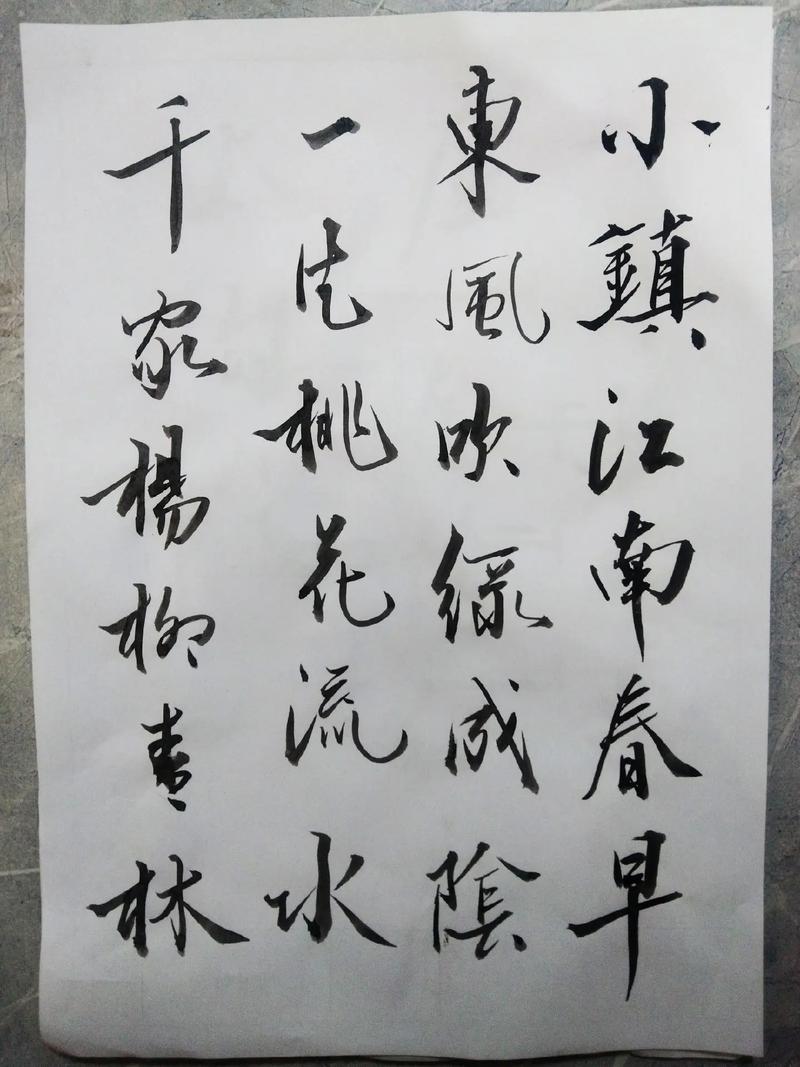 小鎮江南春早
東風吹綠成陰
一片桃花流水
千家楊柳青林